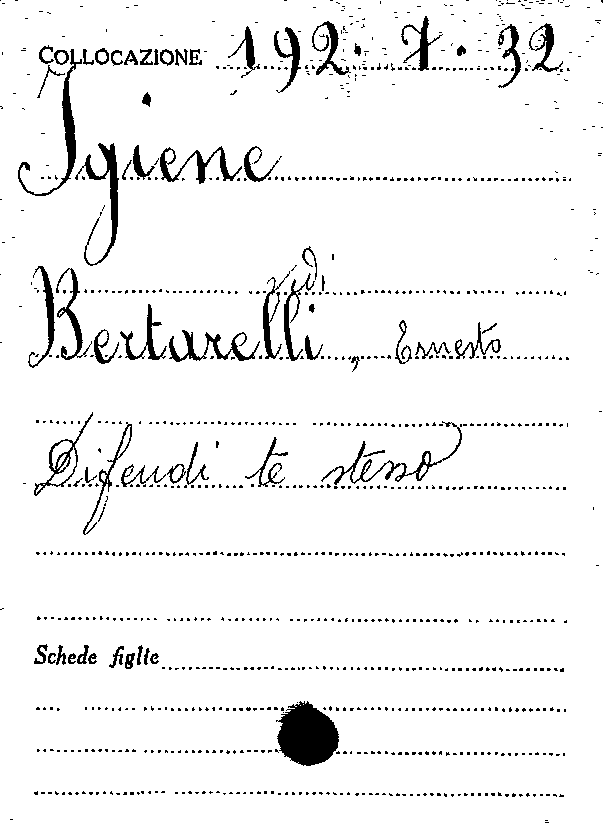 COLLOCAZIONE 192.7.32
Igiene
vedi
Bertarelli, Ernesto
Difendi te stesso
Schede figlie